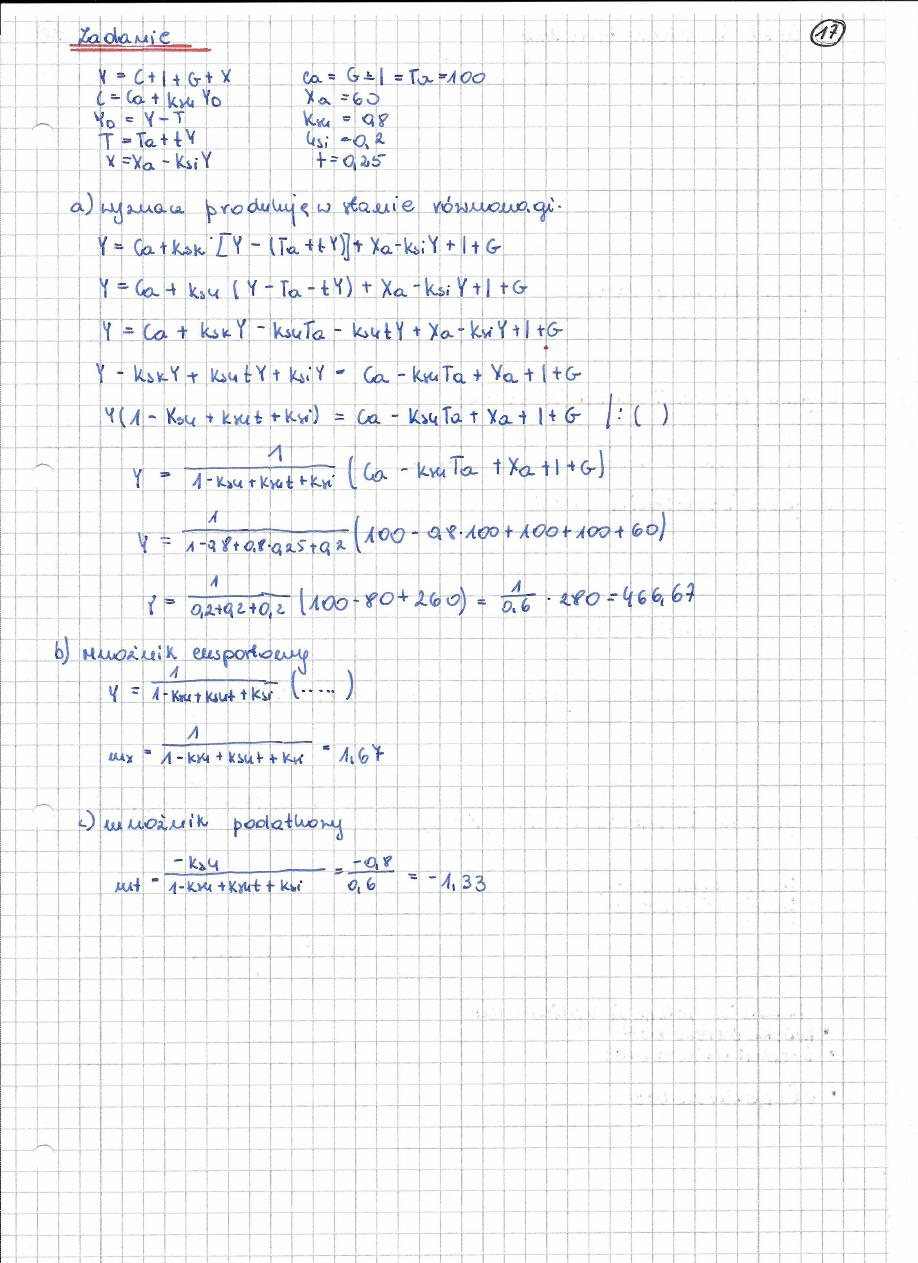 17
Zadanie
Y = C + I + G + X    Ca = G = I = Ta = 100
C = Ca + ksk YD    Xa = 60
YD = Y - T    ksk = 0,8
T = Ta + tY    ksi = 0,2
X = Xa - ksiY    t = 0,25
a) wyznacz produkuję w stanie równowagi.
Y = Ca + ksk · [Y - (Ta + tY)] + Xa - ksiY + I + G
Y = Ca + ksk (Y - Ta - tY) + Xa - ksiY + I + G
Y = Ca + kskY - kskTa - ksktY + Xa - ksiY + I + G
Y - kskY + ksktY + ksiY = Ca - kskTa + Xa + I + G
Y(1 - ksk + kskt + ksi) = Ca - kskTa + Xa + I + G  /: ( )
Y = 1/(1 - ksk + kskt + ksi) (Ca - kskTa + Xa + I + G)
Y = 1/(1 - 0,8 + 0,8·0,25 + 0,2) (100 - 0,8·100 + 100 + 100 + 60)
Y = 1/(0,2 + 0,2 + 0,2) (100 - 80 + 260) = 1/0,6 · 280 = 466,67
b) mnożnik eksportowy
Y = 1/(1 - ksk + kskt + ksi) (.....)
mx = 1/(1 - ksk + kskt + ksi) = 1,67
c) mnożnik podatkowy
mt = -ksk/(1 - ksk + kskt + ksi) = -0,8/0,6 = -1,33